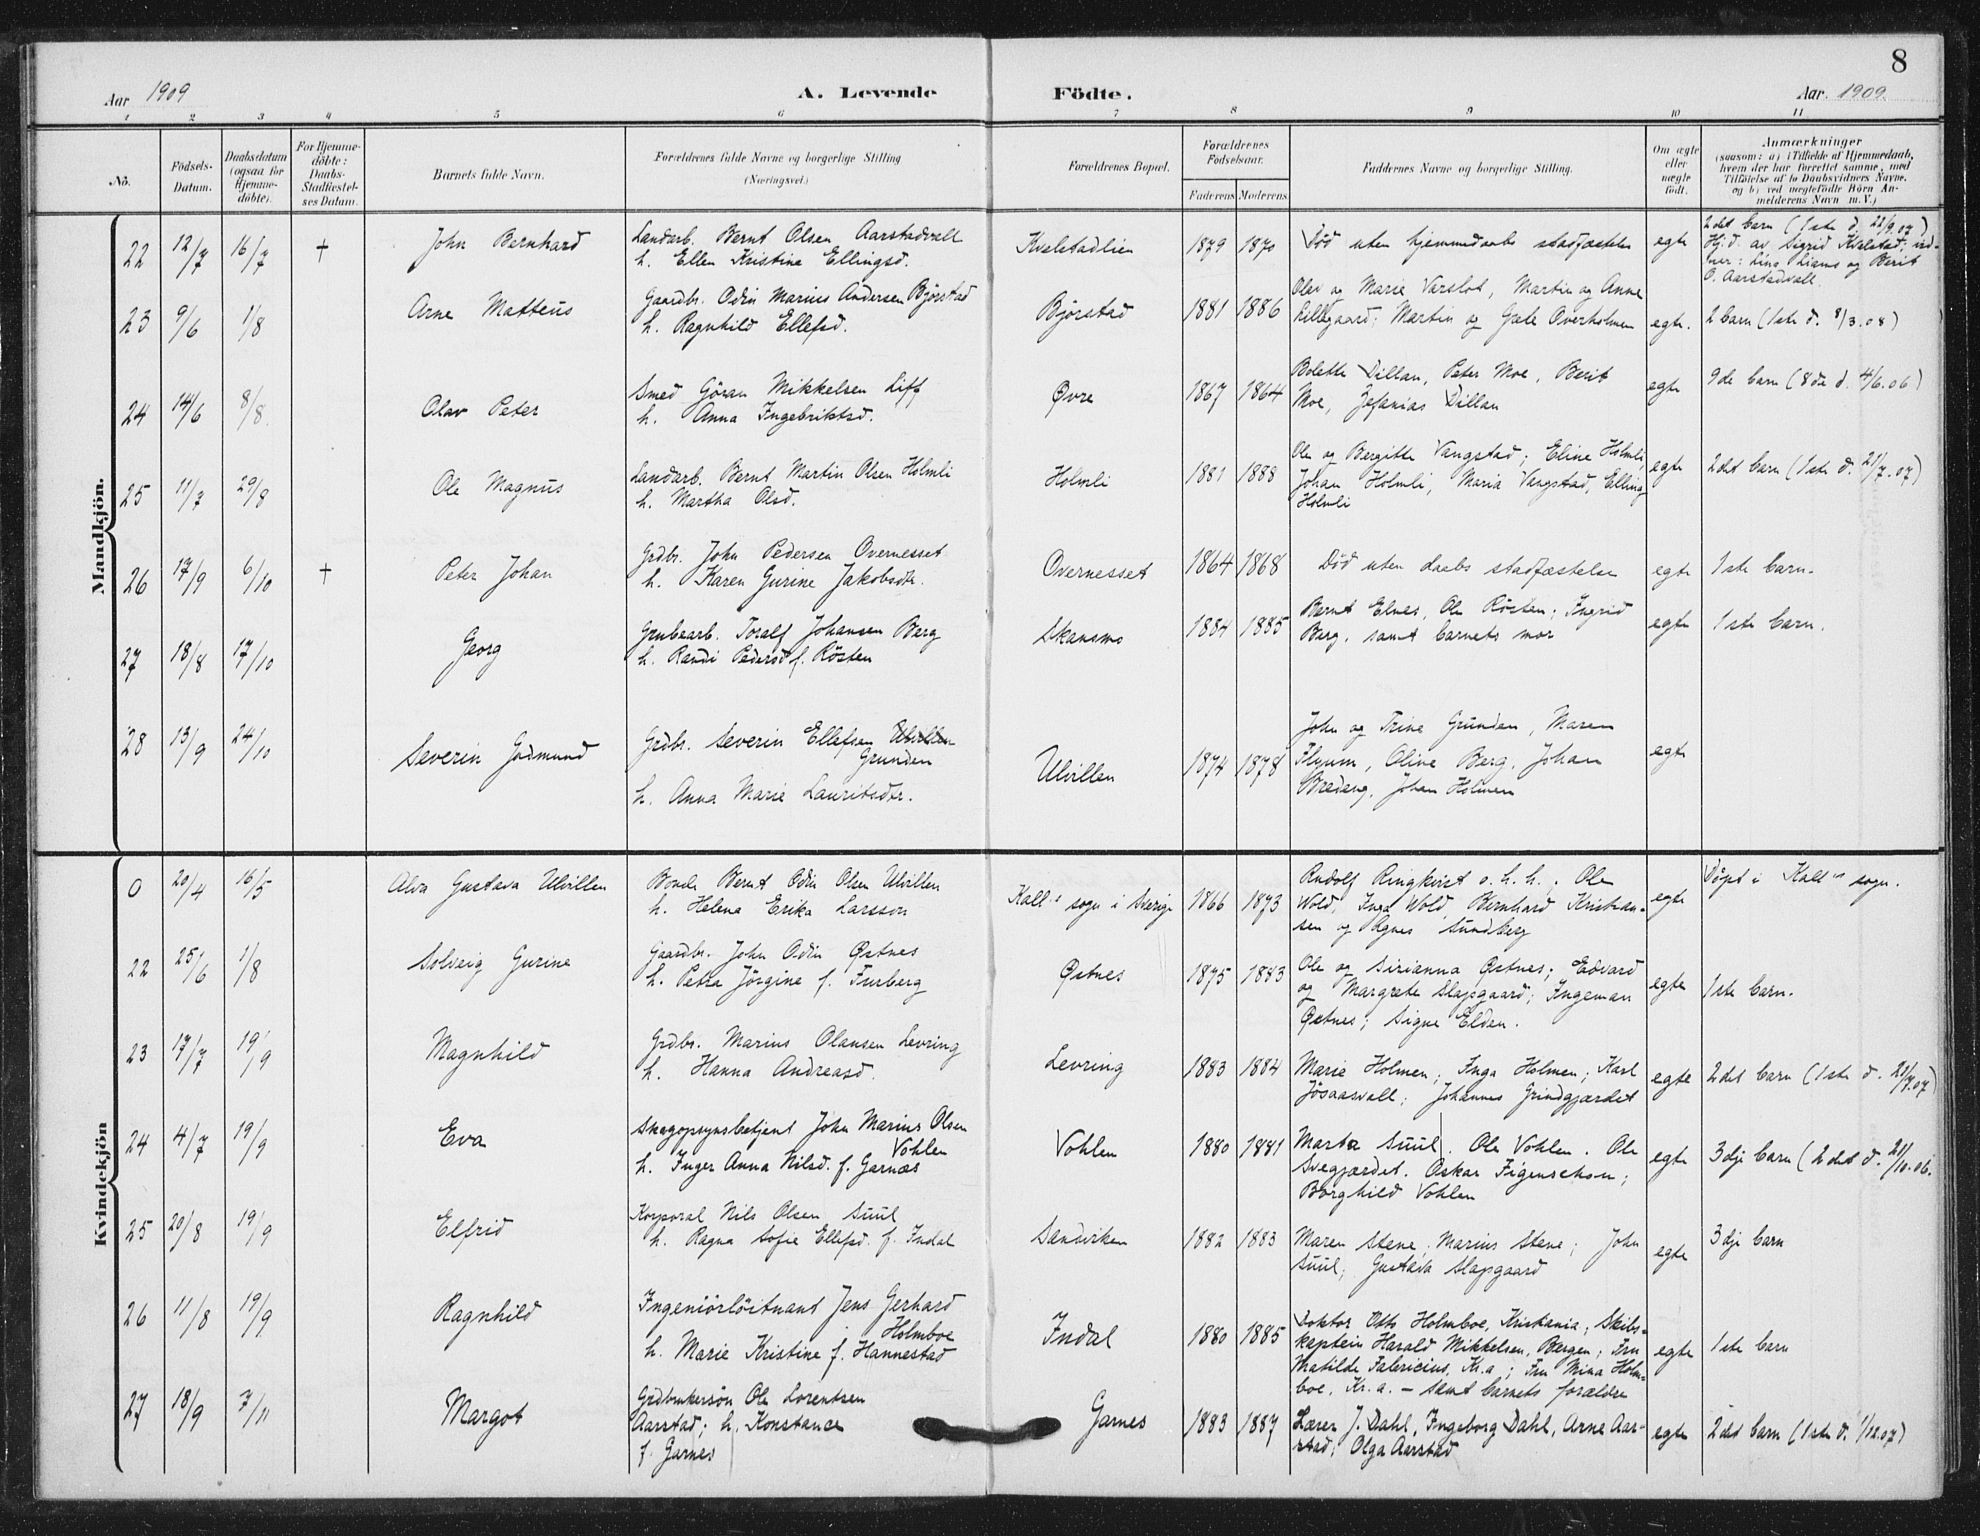 8
Aar 1909
A. Levende
Födte.
Aar. 1909.
1 2 3 4 5 6 7 8 9 10 11
No.
Födsels-
Datum.
Daabsdatum
(ogsaa for
Hjemme-
döbte).
For Hjemme-
döbte:
Daabs-
Stadfæstel-
ses Datum.
Barnets fulde Navn.
Forældrenes fulde Navne og borgerlige Stilling
(Næringsvei.)
Forældrenes Bopæl.
Forældrenes
Födselsaar.
Faderens Moderens
Faddernes Navne og borgerlige Stilling.
Om ægte
eller
uægte
födt.
Anmærkninger
(saasom: a) i Tilfælde af Hjemmedaab,
hvem der har forrettet samme, med
Tilföielse af to Daabsvidners Navne,
og b) ved uægtefödte Börn An-
melderens Navn m. V.)
Mandkjön.
22 12/7 16/7 † John Bernhard
Landarb. Bernt Olsen Aarstadvall
h. Ellen Kristine Ellingsd.
Kvelstadlien 1879 1870 Död uten hjemmedaabs stadfæstelse egte
2det barn (1ste d. 22/9.07)
Hj.d. av Sigrid Kvelstad; vid-
ner: Lina Liams og Berit
O. Aarstadvall.
23 9/6 1/8 Arne Matteus
Gaardbr. Odin Marius Andersen Bjørstad
h. Ragnhild Ellefsd.
Bjørstad 1881 1886
Olav og Marie Varslot, Martin og Anne
Lillegaard; Martin og Gale Overholmen
egte. 2 barn (1ste d. 8/3.08)
24 14/6 8/8. Olav Peter
Smed Göran Mikkelsen Liff
h. Anna Ingebriktsd.
Øvre 1867 1864
Bolette Dillan, Peter Moe, Berit
Moe, Zefanias Dillan
egte 9de barn (8de d. 4/6.06)
25 11/7 29/8 Ole Magnus
Landarb. Bernt Martin Olsen Holmli
h. Martha Olsd.
Holmli 1881 1888
Ole og Bergitte Vangstad; Eline Holmli;
Johan Holmli, Maria Vangstad, Elling
Holmli
egte 2det barn (1ste d. 21/7.07)
26 17/9 6/10 † Peter Johan
Grdbr. John Pedersen Overnesset
h. Karen Gurine Jakobsdtr.
Overnesset 1864 1868 Död uten daabs stadfæstelse egte 1ste barn.
27 18/8 17/10 Georg
Grubearb. Toralf Johansen Berg
h. Randi Pedersd f. Røsten
Skansmo 1884 1885
Bernt Elnes, Ole Røsten; Ingrid
Berg, samt barnets mor
egte 1ste barn.
28 13/9 24/10 Severin Godmund
Grdbr. Severin Ellefsen Ulvillen
Grunden
h. Anna Marie Lauritsdtr.
Ulvillen 1874 1878
John og Trine Grunden, Maren
Flyum, Oline Berg, Johan
Bredeng, Johan Holmen
egte
Kvindekjön
0 20/4 16/5 Alva Gustava Ulvillen
Bonde Bernt Odin Olsen Ulvillen
h. Helena Erika Larsson
Kall's sogn i Sverige 1866 1873
Rudolf Ringkvist o.h.h.; Ole
Wold, Inga Wold, Bernhard Kristian-
sen og Agnes Sundberg
egte Döpt i Kall's sogn.
22 25/6 1/8 Solveig Gurine
Gaardbr. John Odin Østnes
h. Petra Jörgine f. Furberg
Østnes 1875 1883
Ole og Sirianna Østnes; Edvard
og Margrete Slapgaard; Ingeman
Østnes; Signe Elden.
egte 1ste barn.
23 17/7 19/9 Magnhild
Grdbr. Marius Olausen Levring
h. Hanna Andreasd.
Levring 1883 1884
Marie Holmen; Inga Holmen; Karl
Jösaasvall; Johannes Grindgjærdet
egte 2det barn (1ste d. 29/7.07)
24 4/7 19/9 Eva
Skogopsynsbetjent John Marius Olsen
Vohlen
h. Inger Anna Nilsd. f. Garnæs
Vohlen 1880 1881
Marta Suul. Ole Vohlen. Ole
Svegjærdet. Oskar Figenschou;
Borghild Vohlen
egte 3dje barn (2det d. 21/10.06.
25 20/8 19/9 Elfrid
Korporal Nils Olsen Suul
h. Ragna Sofie Ellefsd. f. Indal
Sandviken 1882 1883
Maren Stene, Marius Stene; John
Suul; Gustava Slapgaard
egte 3dje barn
26 11/8 19/9 Ragnhild
Ingeniörlöitnant Jens Gerhard
Holmboe
h. Marie Kristine f. Hannestad
Indal 1880 1885
Doktor Otto Holmboe, Kristiania; Skibs-
kaptein Harald Mikkelsen, Bergen; Fru
Matilde Fabricius, Kr.a; Fru Mina Holm-
boe, Kr.a. – samt barnets forældre
egte 1ste barn
27 18/9 7/11 Margot
Grdbrukersön Ole Lorentsen
Aarstad; h. Konstance
f. Garnes
Garnes 1883 1887
Lærer J. Dahl, Ingeborg Dahl, Arne Aar-
stad; Olga Aarstad
egte 2det barn (1ste d. 1/12.07)